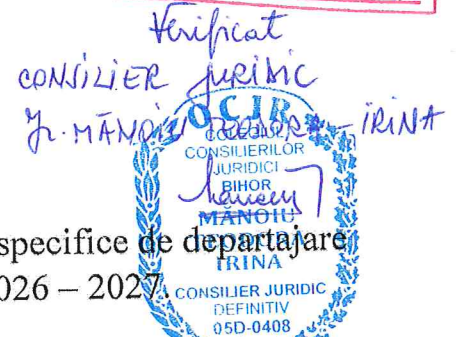 Verificat
CONSILIER JURIDIC
Jr. MĂNOIU TEODORA-IRINA
OCJB
COLEGIUL
CONSILIERILOR
JURIDICI
BIHOR
MĂNOIU
TEODORA
IRINA
CONSILIER JURIDIC
DEFINITIV
05D-0408
specifice de departajare
026 – 2027.